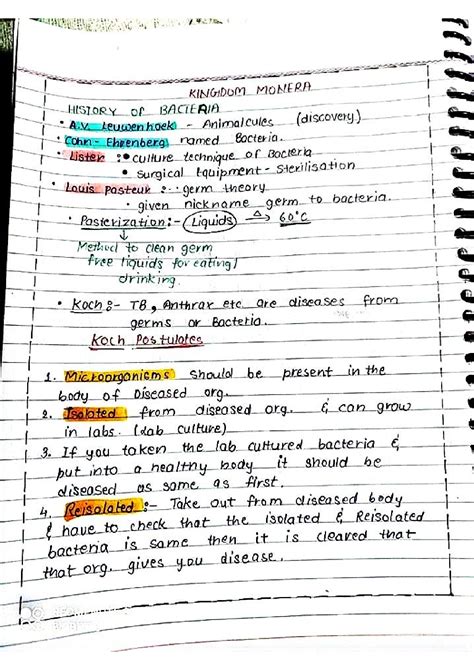 KINGDOM MONERA
HISTORY OF BACTERIA
• A.V. Leuwenhoek - Animalcules (discovery)
• Cohn - Ehrenberg named Bacteria.
• Lister :• culture technique of Bacteria
• surgical Equipment - Sterilisation
• Louis pasteur :-• germ theory
• given nickname germ to bacteria.
• Pasterization :- (Liquids) Δ→ 60°C
↓
Method to clean germ
free liquids for eating/
drinking.
• Koch :- TB, Anthrax etc. are diseases from
germs or Bacteria.
Koch Postulates
1. Microorganisms should be present in the
body of Diseased org.
2. Isolated from diseased org. & can grow
in labs. (Lab culture)
3. If you taken the lab cultured bacteria &
put into a healthy body it should be
diseased as same as first.
4. Reisolated :- Take out from diseased body
& have to check that the isolated & Reisolated
bacteria is same then it is cleared that
that org. gives you disease.